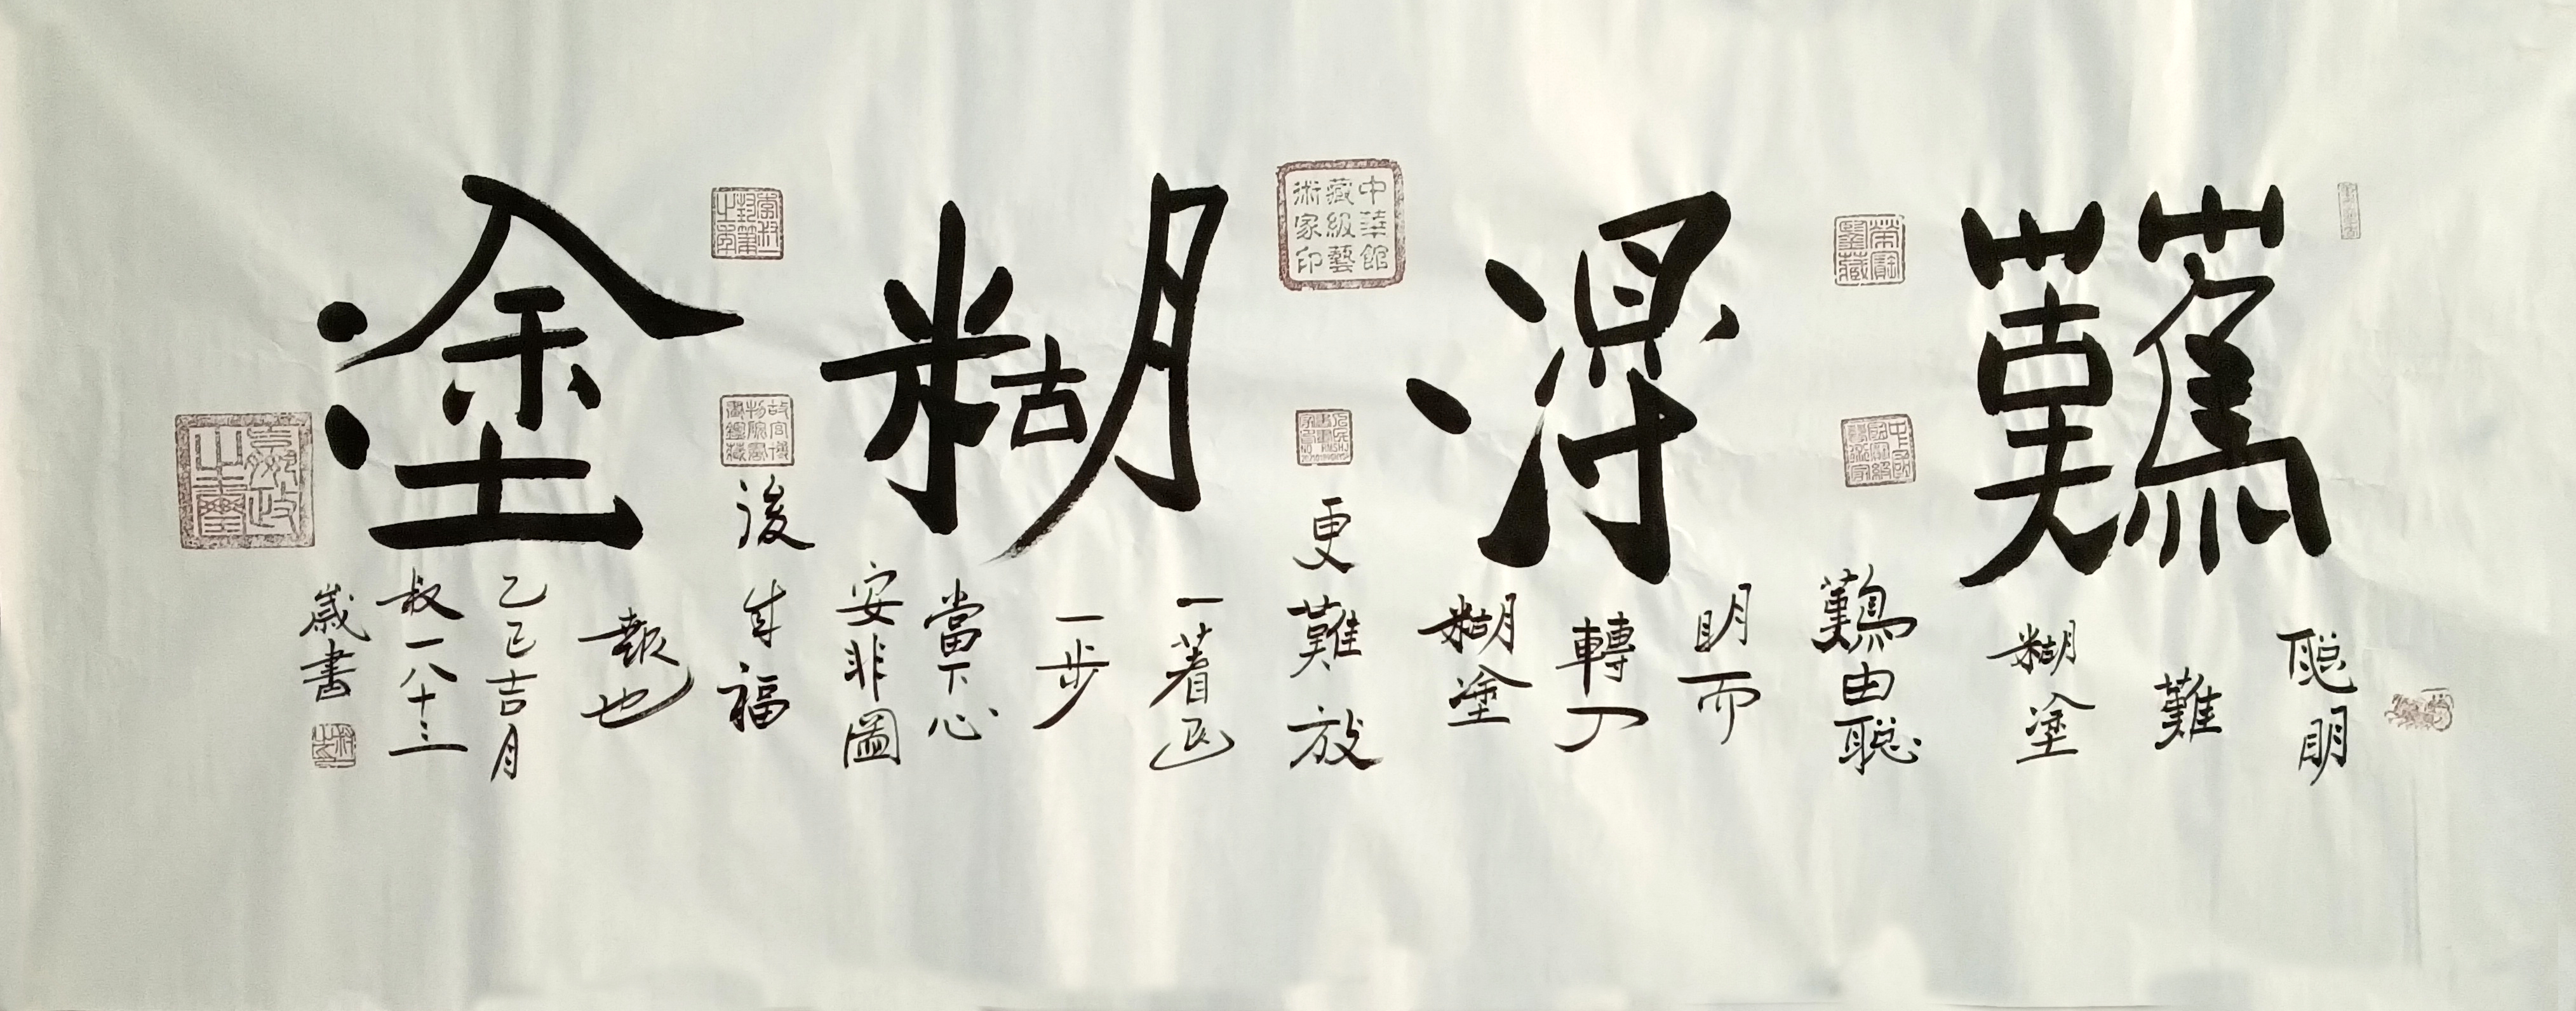 難得糊塗
聰明
難
糊塗
難由聰
明而
轉入
糊塗
更難放
一著退
一步
當下心
安非圖
後來福
報也
乙巳吉月
叔一八十三
歲書
中華館
藏級藝
術家印